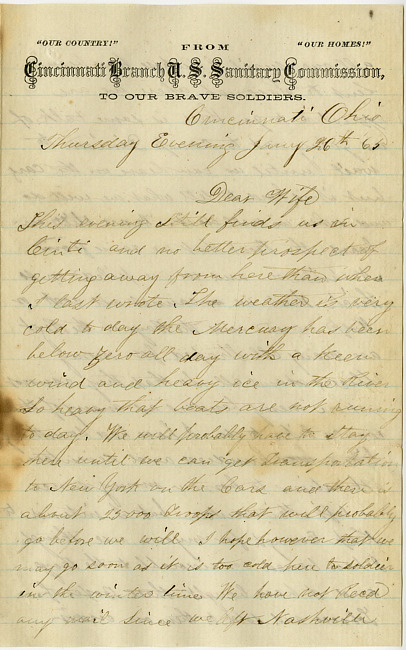 "OUR COUNTRY!" FROM "OUR HOMES!"
Cincinnati Branch U.S. Sanitary Commission,
TO OUR BRAVE SOLDIERS.
Cincinnati Ohio
Thursday Evening Jany 26th 65
Dear Wife
This evening Still finds us in
Cinti and no better prospect of
getting away from here than when
I last wrote. The weather is very
cold to day the Mercury has been
below Zero all day with a keen
wind and heavy ice in the River
So heavy that boats are not running
to day. We will probably have to stay
here until we can get transportation
to New York on the Cars and there is
about 25000 troops that will probably
go before we will I hope however that we
may go soon as it is too cold here to soldier
in the winter time We have not recd
any mail since we left Nashville